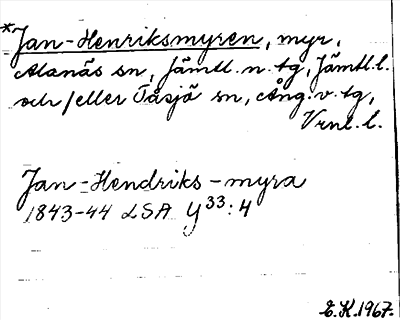 *Jan-Henriksmyren, myr,
Alanäs sn, Jämtl. n. tg, Jämtl. l.
och/eller Tåsjö sn, Ång. v. tg,
Vrnl. l.
Jan-Hendriks-myra
1843-44 LSA Y33:4
E.K. 1967.